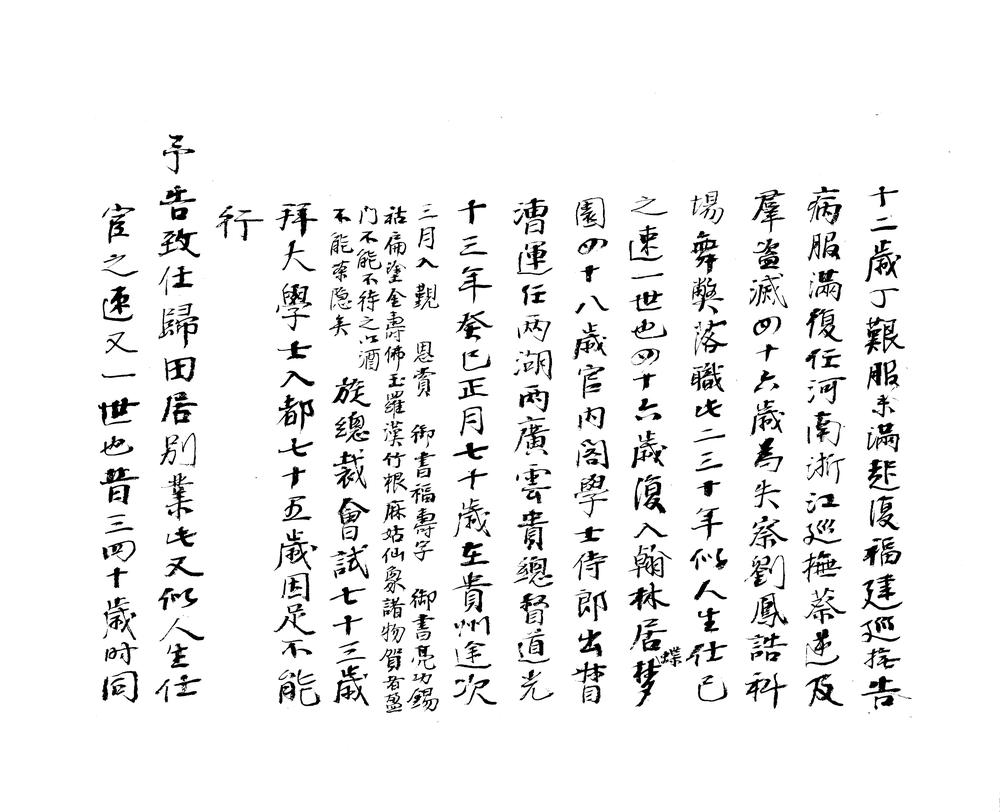 十二歲丁艱服未滿起復福建巡撫告
病服滿復任河南浙江巡撫蔡逆及
羣盜滅四十六歲為失察劉鳳誥科
場舞弊落職此二三十年似人生仕已
之速一世也四十六歲復入翰林居蝶夢
園四十八歲官內閣學士侍郎出督
漕運任兩湖兩廣雲貴總督道光
十三年癸巳正月七十歲在貴州途次
三月入覲 恩賞 御書福壽字 御書亮功錫
祜扁塗金壽佛玉羅漢竹根麻姑仙象諸物賀者盈
門不能不待之以酒
不能茶隐矣
旋總裁會試七十三歲
拜大學士入都七十五歲因足不能
行
予告致仕歸田居別業此又似人生仕
宦之速又一世也昔三四十歲時同